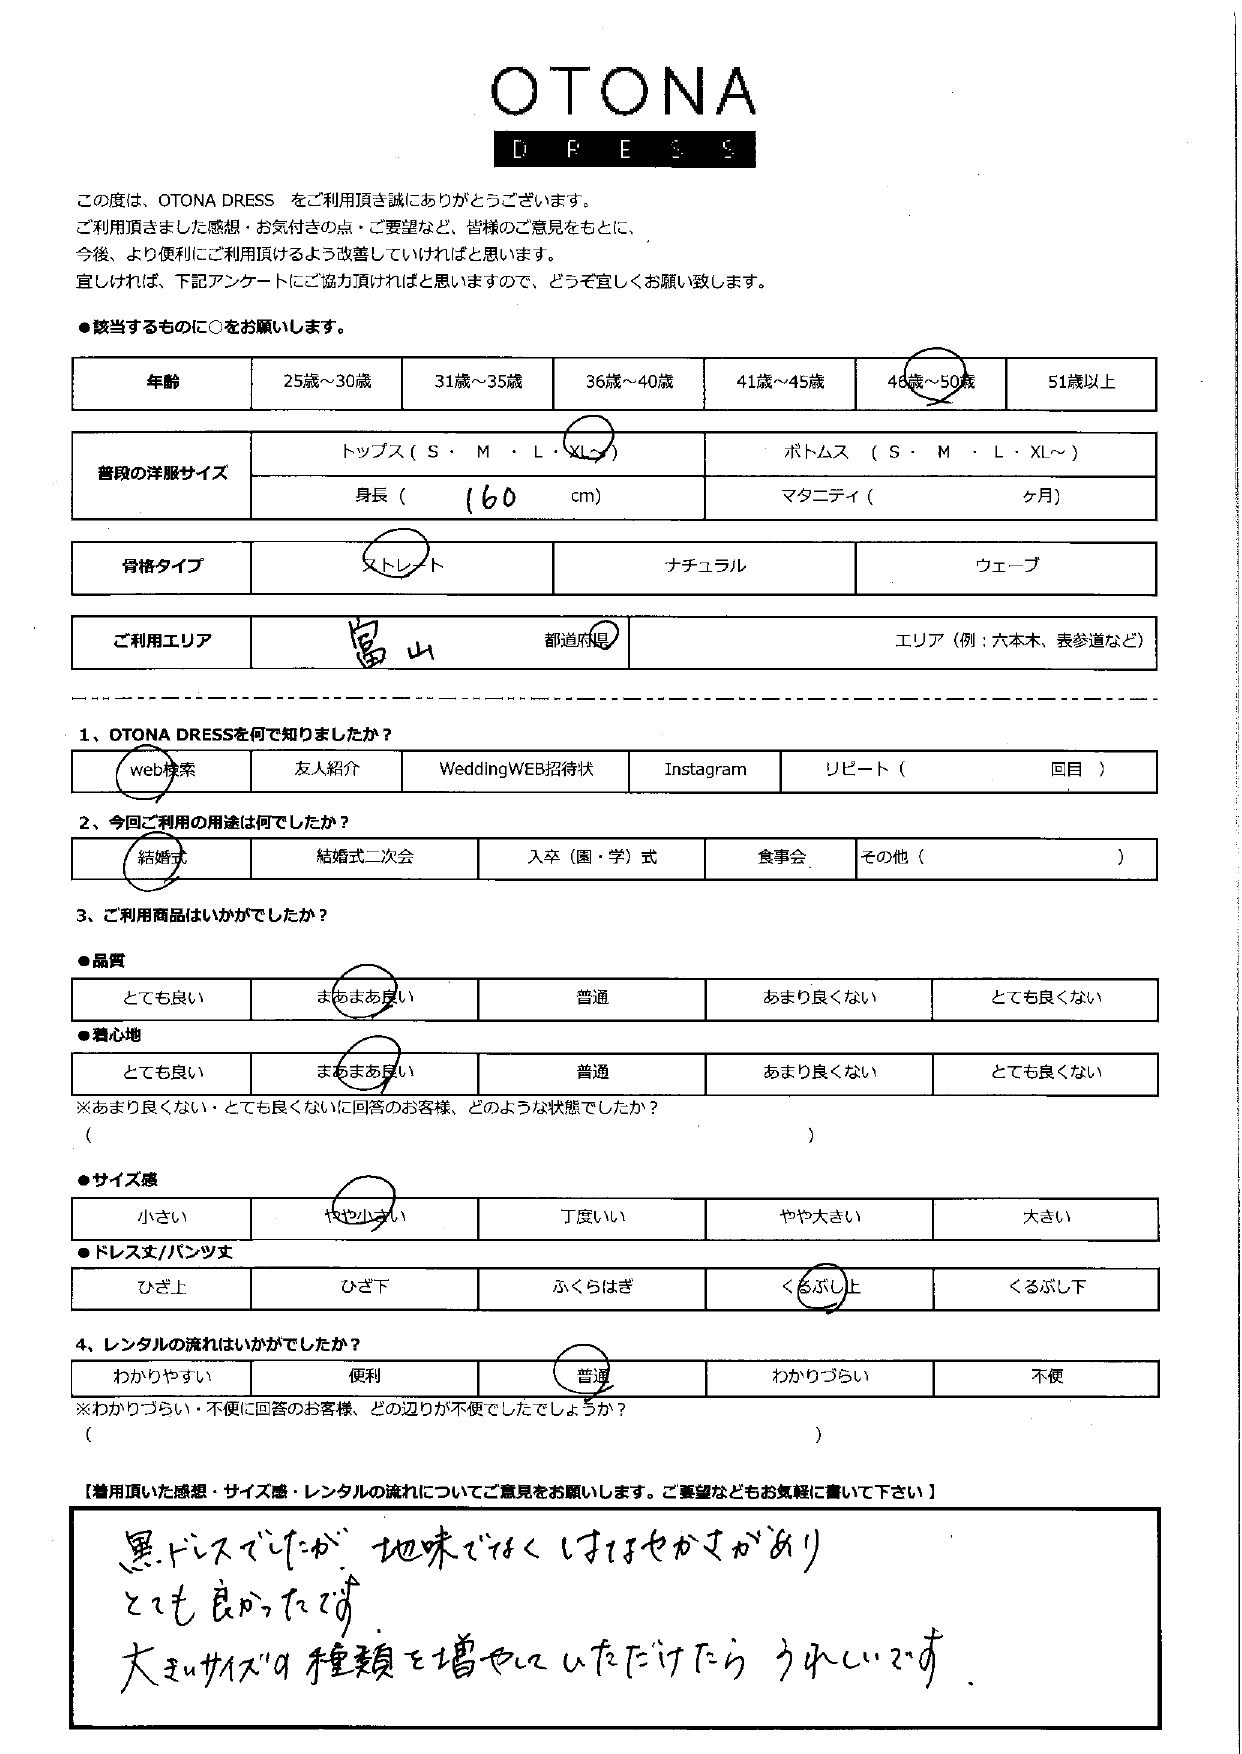 OTONA
DRESS
この度は、OTONA DRESS をご利用頂き誠にありがとうございます。
ご利用頂きました感想・お気付きの点・ご要望など、皆様のご意見をもとに、
今後、より便利にご利用頂けるよう改善していければと思います。
宜しければ、下記アンケートにご協力頂ければと思いますので、どうぞ宜しくお願い致します。
●該当するものに○をお願いします。
年齢 25歳～30歳 31歳～35歳 36歳～40歳 41歳～45歳 46歳～50歳 51歳以上
普段の洋服サイズ トップス ( S ・ M ・ L ・ XL～ ) ボトムス ( S ・ M ・ L ・ XL～ )
身長 ( 160 cm) マタニティ ( ヶ月)
骨格タイプ ストレート ナチュラル ウェーブ
ご利用エリア 富山 都道府県 エリア（例：六本木、表参道など）
1、OTONA DRESSを何で知りましたか？
web検索 友人紹介 WeddingWEB招待状 Instagram リピート ( 回目 )
2、今回ご利用の用途は何でしたか？
結婚式 結婚式二次会 入卒（園・学）式 食事会 その他 ( )
3、ご利用商品はいかがでしたか？
●品質
とても良い まあまあ良い 普通 あまり良くない とても良くない
●着心地
とても良い まあまあ良い 普通 あまり良くない とても良くない
※あまり良くない・とても良くないに回答のお客様、どのような状態でしたか？
( )
●サイズ感
小さい やや小さい 丁度いい やや大きい 大きい
●ドレス丈/パンツ丈
ひざ上 ひざ下 ふくらはぎ くるぶし上 くるぶし下
4、レンタルの流れはいかがでしたか？
わかりやすい 便利 普通 わかりづらい 不便
※わかりづらい・不便に回答のお客様、どの辺りが不便でしたでしょうか？
( )
【着用頂いた感想・サイズ感・レンタルの流れについてご意見をお願いします。ご要望などもお気軽に書いて下さい】
黒ドレスでしたが、地味でなく はなやかさがあり
とても良かったです
大きいサイズの種類を増やしていただけたら うれしいです.